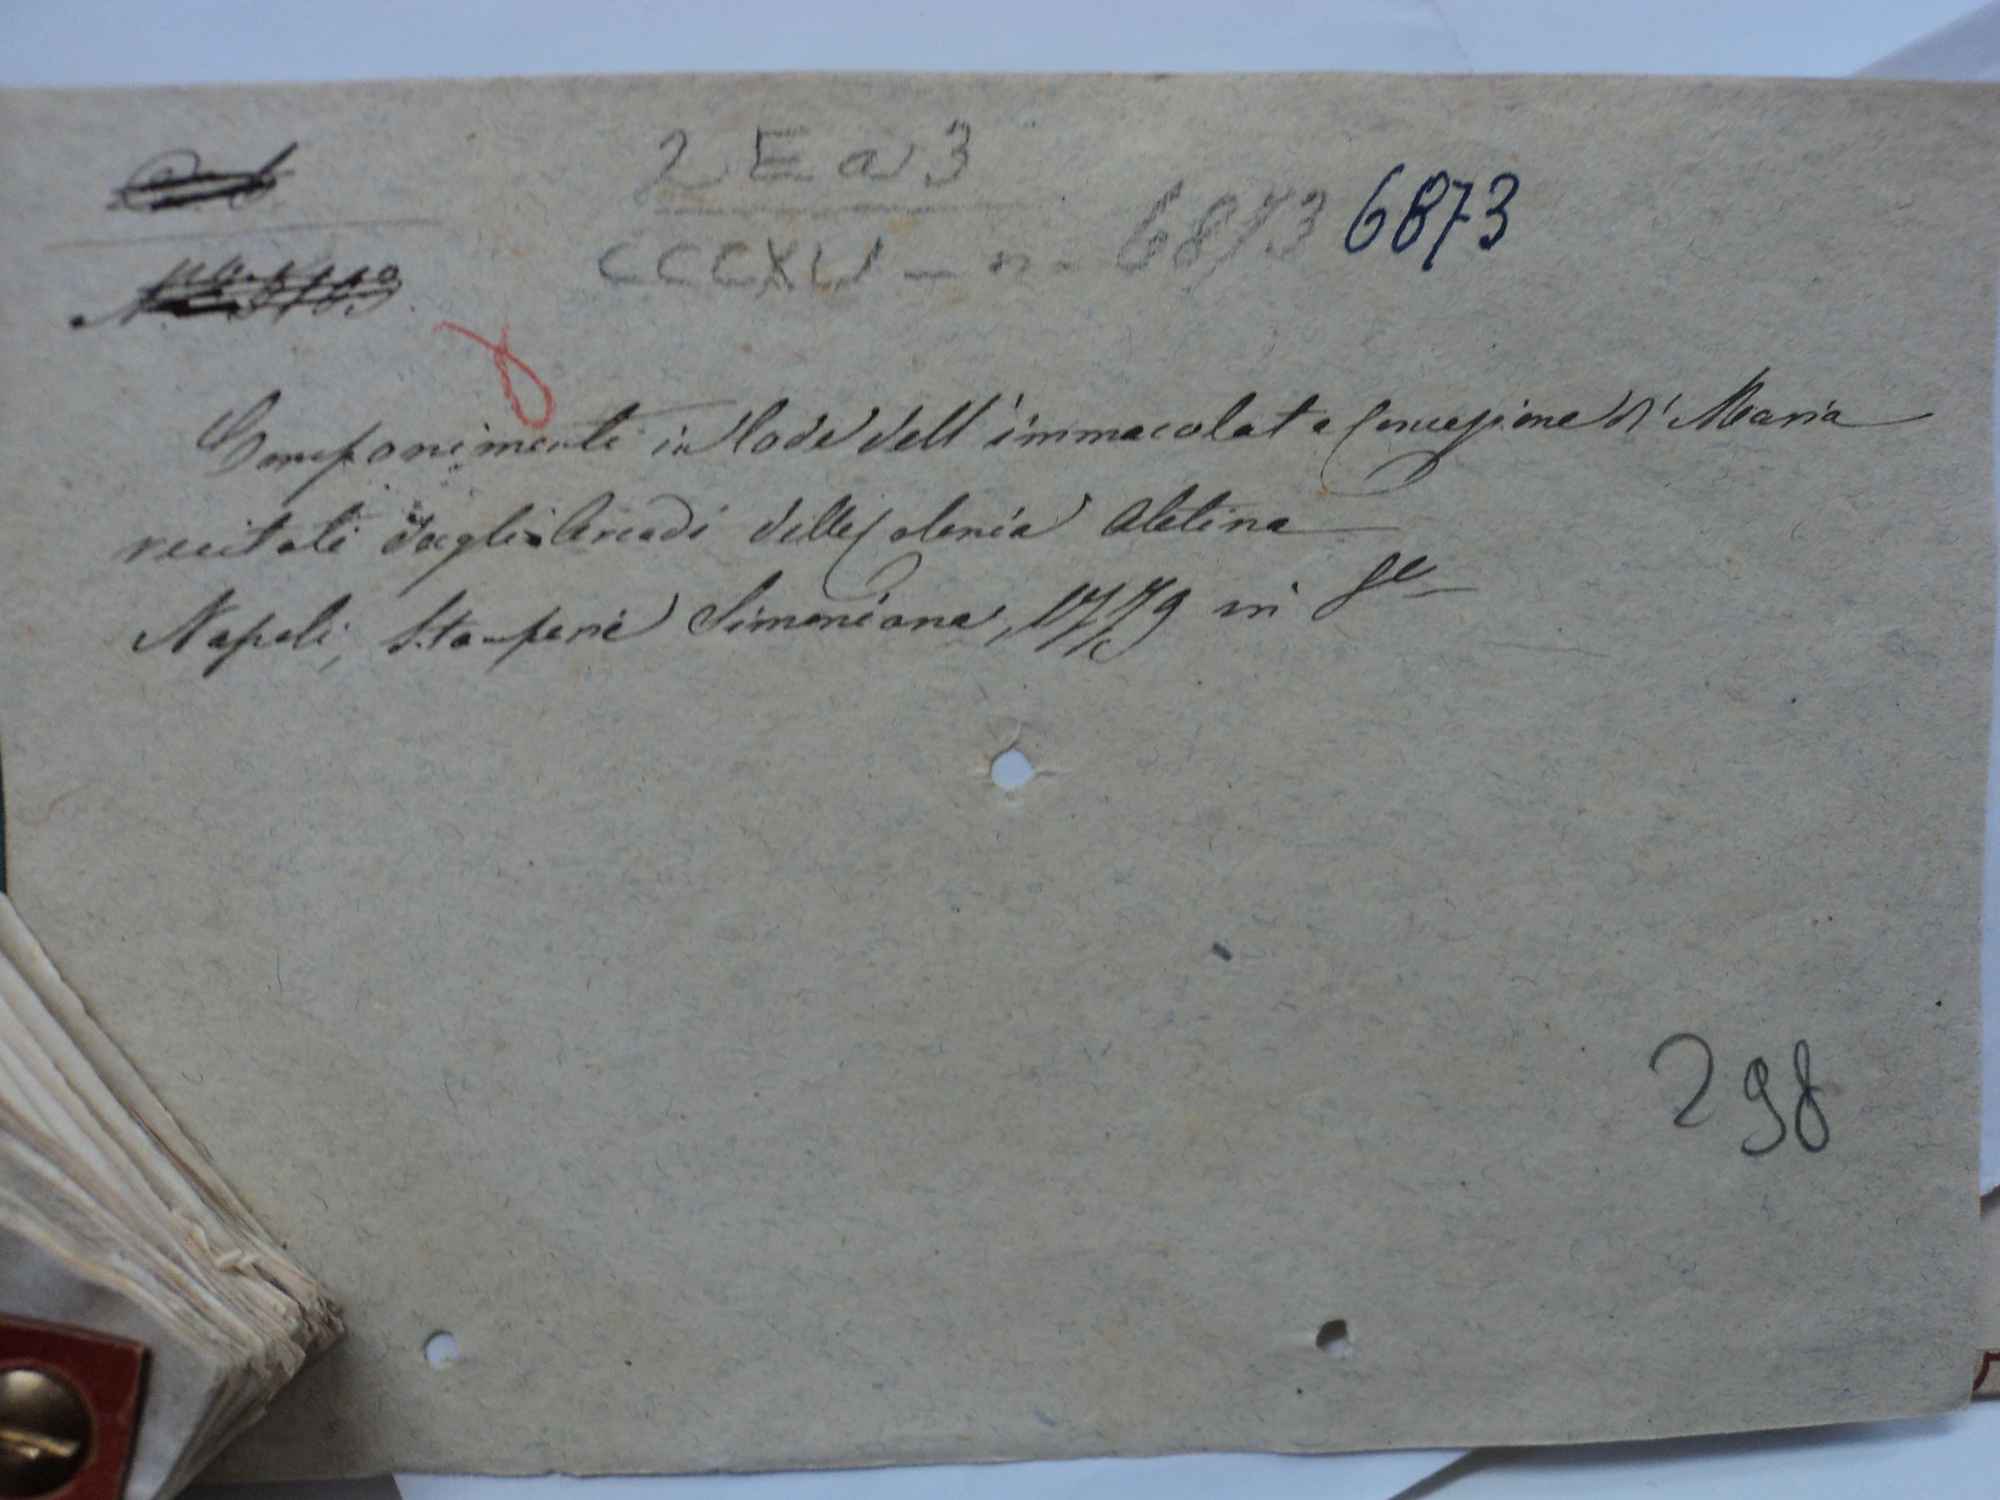 2 E a 3
CCCXLV - n. 6873 6873
Componimenti in lode dell'immacolata Concezione di Maria
recitati dagli Arcadi della Colonia Aletina
Napoli, Stamperia Simoniana, 1779 in 8°
298